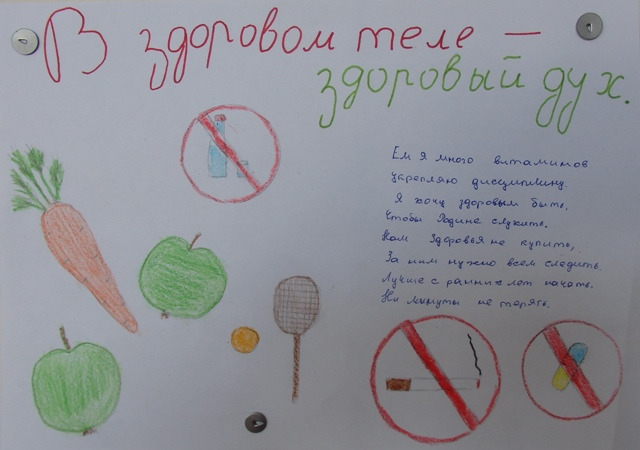 В здоровом теле —
здоровый дух.
Ем я много витаминов
укрепляю дисциплину.
Я хочу здоровым быть,
Чтобы Родине служить.
Нам Здоровья не купить,
За ним нужно всем следить.
Лучше с ранних лет начать.
Ни минуты не терять.